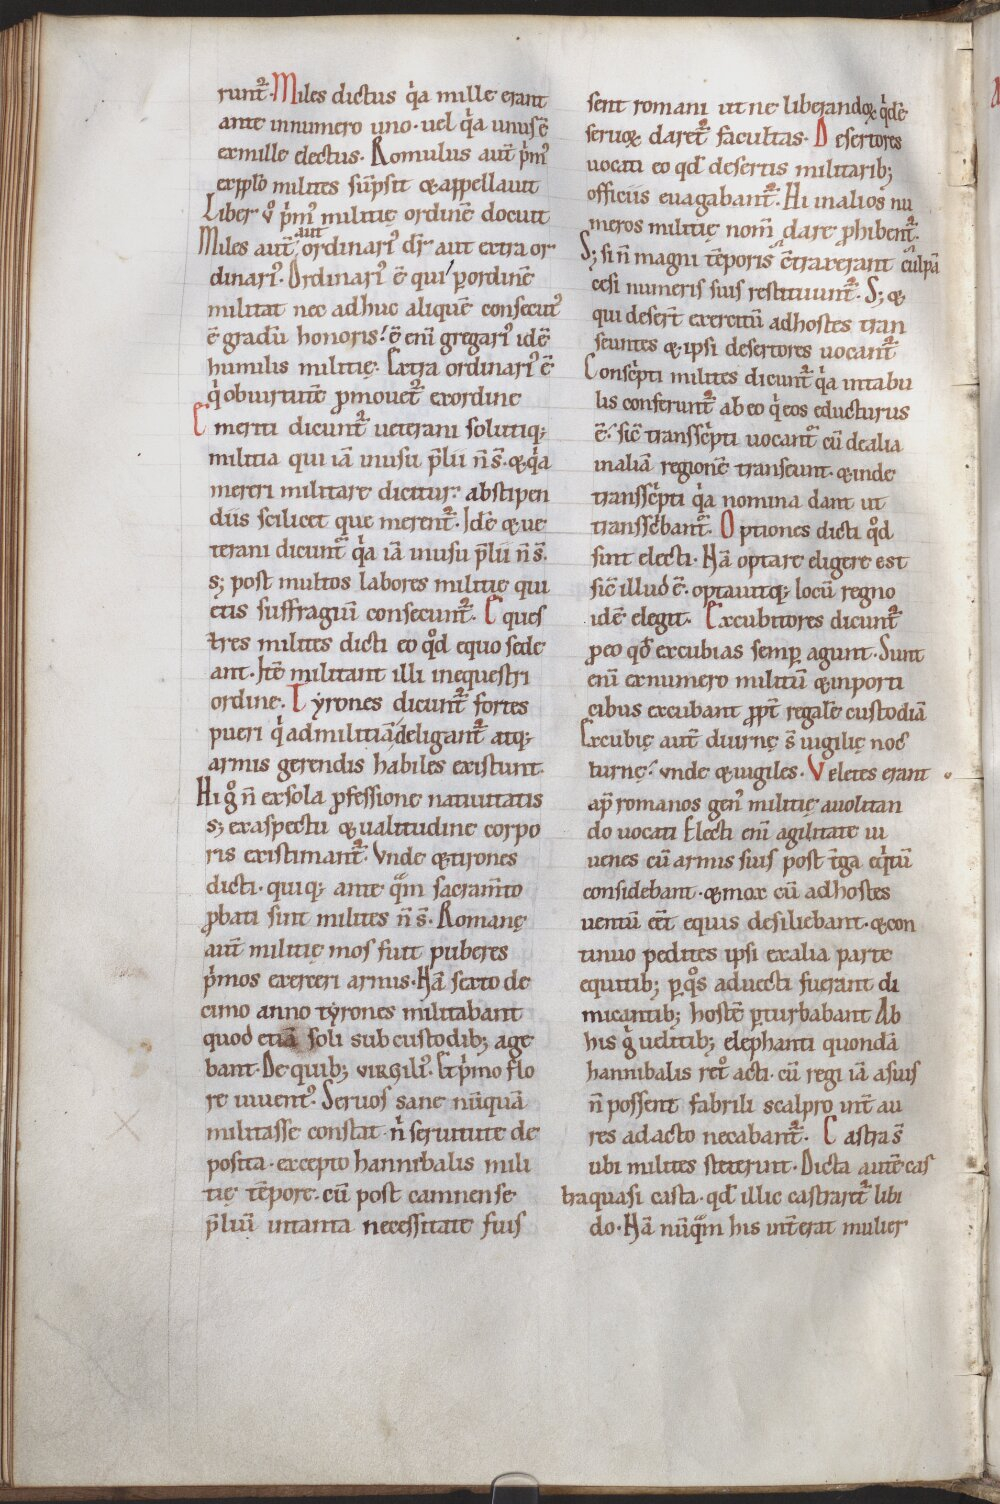 runt᷑. Miles dictus q̇a mille erant
ante innumero uno. uel q̇a unus ē
exmille electus. Romulus aut̄ ṗmꝰ
expplo milites sūpsit & appellauit
Liber ů ṗmꝰ militię ordinē docuit
Miles aut̄ aut ordinariꝰ dr̄ aut extra or
dinariꝰ. Ordinariꝰ ē qui ꝑ ordinē
militat nec adhuc aliquē consecutꝰ
ē gradū honoris. ē eni gregariꝰ idē
humilis militię. Extra ordinariꝰ ē
q̇ obuirtutē ꝓmouet᷑ exordine
Emeriti dicunt᷑ ueterani solutiq;
militia qui iā inusu p̄lii n̄ s̄. & q̇a
mereri militare dicitur. abstipen
diis scilicet que merent᷑. Idē & ue
terani dicunt᷑ q̇a iā inusu p̄lii n̄ s̄.
s; post multos labores militię qui
etis suffragiū consecunt᷑. Eques
tres milites dicti eo qd̊ equo sede
ant. Itē militant illi inequestri
ordine. Tyrones dicunt᷑ fortes
pueri q̇ admilitiā deligant᷑ atq;
armis gerendis habiles existunt.
Hi g̊ n̄ exsola ꝓfessione natiuitatis
s; exaspectu & ualitudine corpo
ris existimant᷑. Vnde & tirones
dicti. quiq; ante qm̄ sacram̄to
ꝓbati sint milites n̄ s̄. Romanę
aut̄ militię mos fuit puberes
ṗmos exerceri armis. Hā sexto de
cimo anno tyrones militabant
quod etiā soli sub custodib; age
bant. De quib; VIRGILIꝰ. Et ṗmo flo
re iuuentꝰ. Seruos sane nūquā
militasse constat n̄ seruitute de
posita. excepto hannibalis mili
tię tēpore. cū post cannense
p̄liū intanta necessitate fuis
sent romani ut ne liberandoꝝ q̇dē
seruoꝝ daret᷑ facultas. Desertores
uocati eo qd̄ desertis militarib;
officiis euagabant᷑. Hi inalios nu
meros militię nom̄ dare ꝓhibent᷑.
S; si n̄ magni tēporis c̄traxerant culpā
cesi numeris suis restituunt᷑. S; &
qui deser̄t exercitū adhostes tran
seuntes & ipsi desertores uocant᷑
Consċpti milites dicunt᷑ q̇a intabu
lis conferunt᷑ ab eo q̇ eos educturus
ē. sic̄ transsċpti uocant᷑ cū dealia
inaliā regionē transeunt. & inde
transsċpti q̇a nomina dant ut
transsċbant᷑. Optiones dicti qd̊
sint electi. Hā optare eligere est
sic̄ illud ē. optauitq; locū regno
idē elegit. Excubitores dicunt᷑
ꝓeo qd̄ excubias semꝑ agunt. Sunt
eni exnumero militū & inporti
cibus excubant ꝓpt̄ regalē custodiā
Excubię aut̄ diurnę s̄ uigilię noc
turnę. vnde & uigiles. Veletes erant
ap̄ romanos genꝰ militię auolitan
do uocati Electi eni agilitate iu
uenes cū armis suis post t̄ga eq̇tū
considebant. & mox cū adhostes
uentū eēt equis desiliebant. & con
tinuo pedites ipsi exalia parte
equitib; ꝑ qo̊s aduecti fuerant di
micantib; hostē ꝑturbabant Ab
his g̊ uelitib; elephanti quondā
hannibalis ret̊ acti. cū regi iā asuis
n̄ possent fabrili scalpro int̄ au
res adacto necabant᷑. Castra s̄
ubi milites steterint. Dicta autē cas
tra quasi casta. qd̄ illic castraret᷑ libi
do. Hā nūqm̄ his int̄erat mulier